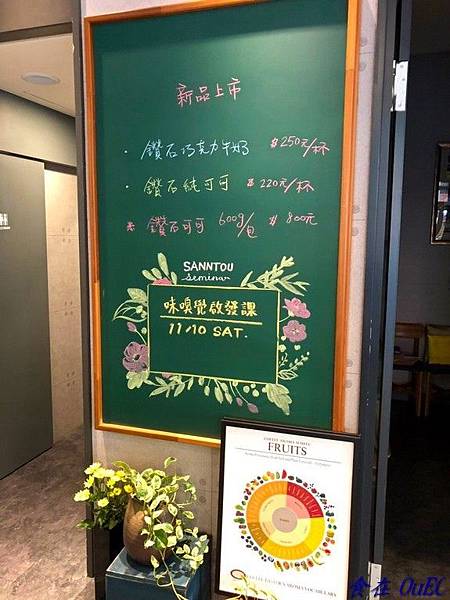 新品上市
· 鑽石巧克力牛奶 $250元/杯
· 鑽石純可可 $220元/杯
※ 鑽石可可 600g/包 $800元
SANNTOU
Seminar
味嗅覺啟發課
11/10 SAT.
FRUITS
食在 OuEC